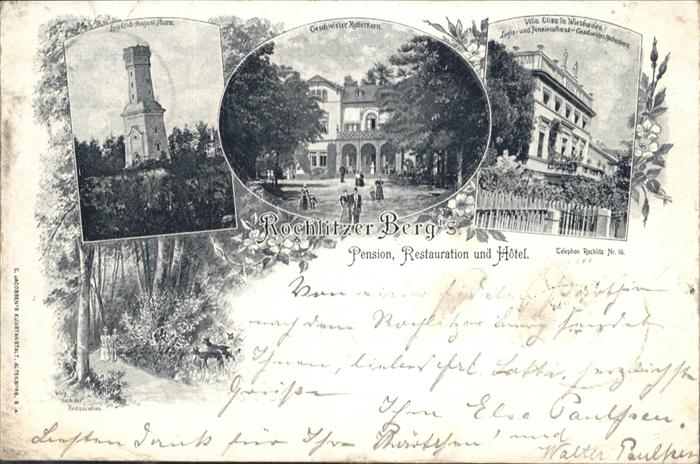 Friedrich-August-Thurm.
Geschwister Haberkorn.
Villa Elisa in Wiesbaden
Logis- und Pensionshaus — Geschwister Haberkorn.
Rochlitzer Berg's
Pension, Restauration und Hôtel.
Telephon Rochlitz Nr. 16.
Weg
nach der
Restauration.
C. JACOBSEN'S KUNSTANSTALT, ALTENBURG, S.A.
Von einer
nach dem Rochlitzer Berg sendet
Ihnen, liebes Frl. Lotte, herzlichste
Grüße
Ihre Else Paulssen.
Besten Dank für Ihr Kärtchen! und
Walter Paulssen